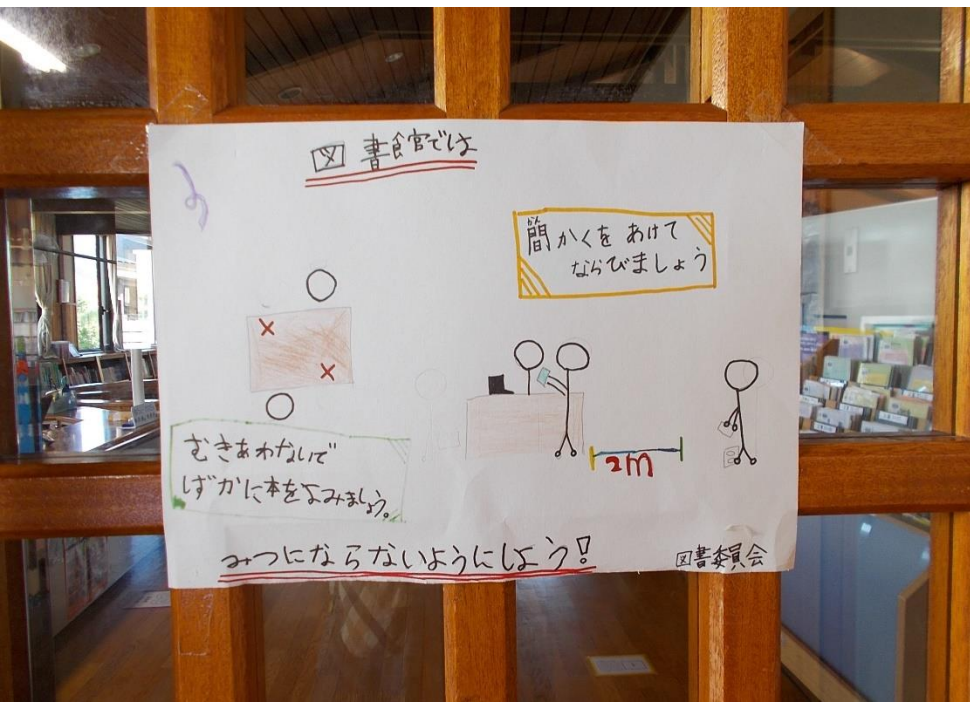 図書館では
間かくをあけて
ならびましょう
むきあわないで
しずかに本をよみましょう。
2m
みつにならないようにしよう!
図書委員会